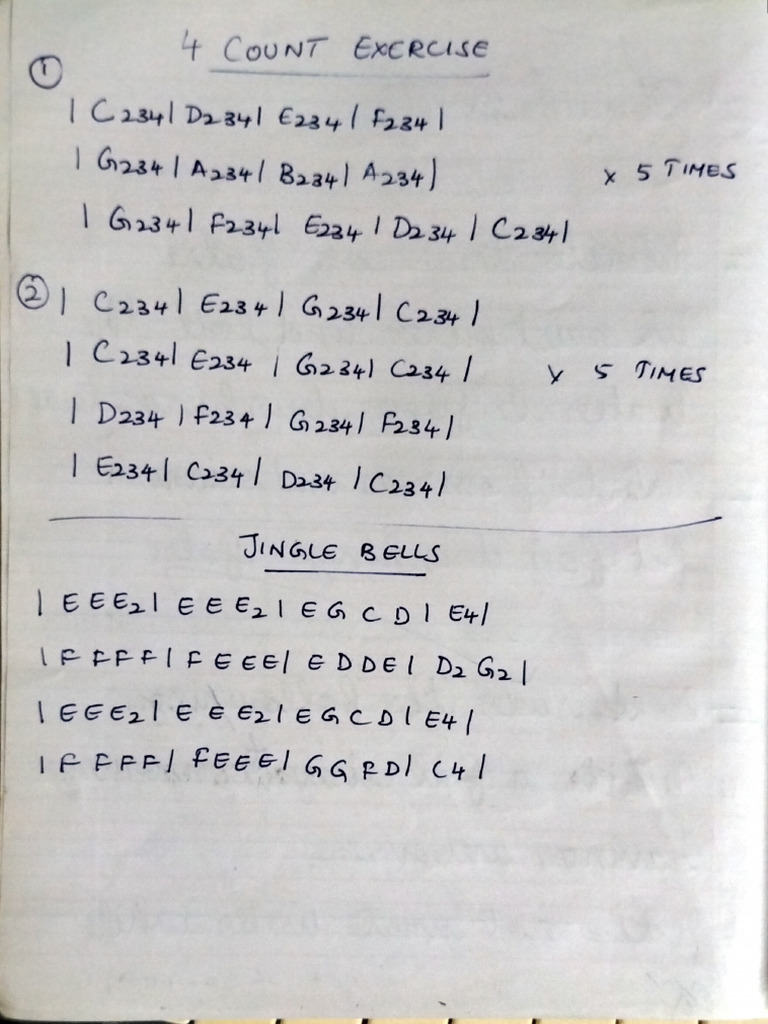 4 COUNT EXERCISE
①
| C234 | D234 | E234 | F234 |
| G234 | A234 | B234 | A234 | x 5 TIMES
| G234 | F234 | E234 | D234 | C234 |
② | C234 | E234 | G234 | C234 |
| C234 | E234 | G234 | C234 | x 5 TIMES
| D234 | F234 | G234 | F234 |
| E234 | C234 | D234 | C234 |
JINGLE BELLS
| E E E2 | E E E2 | E G C D | E4 |
| F F F F | F E E E | E D D E | D2 G2 |
| E E E2 | E E E2 | E G C D | E4 |
| F F F F | F E E E | G G F D | C4 |